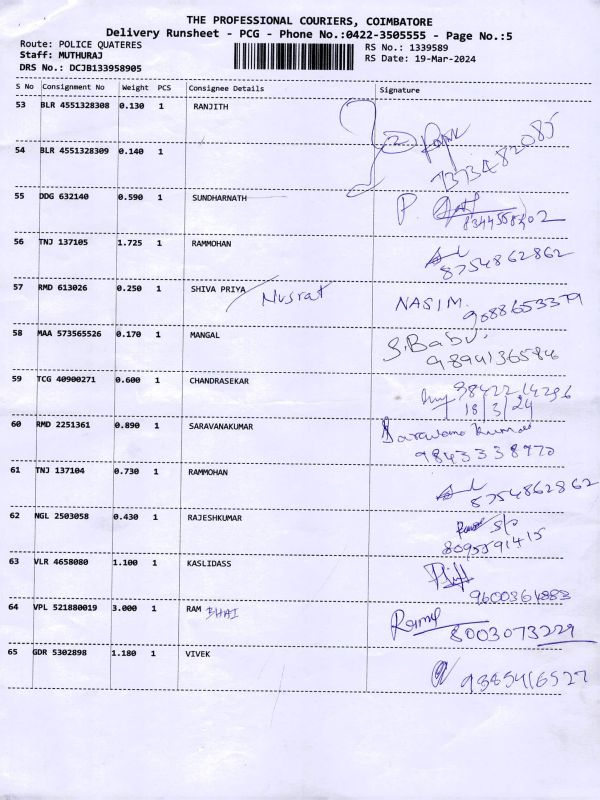 THE PROFESSIONAL COURIERS, COIMBATORE
Delivery Runsheet - PCG - Phone No.:0422-3505555 - Page No.:5
Route: POLICE QUATERES RS No.: 1339589
Staff: MUTHURAJ RS Date: 19-Mar-2024
DRS No.: DCJB133958905
S No Consignment No Weight PCS Consignee Details Signature
53 BLR 4551328308 0.130 1 RANJITH
54 BLR 4551328309 0.140 1
7373482085
55 DDG 632140 0.590 1 SUNDHARNATH P.
56 TNJ 137105 1.725 1 RAMMOHAN
8754862862
57 RMD 613026 0.250 1 SHIVA PRIYA Nusrat NASIM
9088653379
58 MAA 573565526 0.170 1 MANGAL S.Babu.
9894136584
59 TCG 40900271 0.600 1 CHANDRASEKAR 9842214296
18/3/24
60 RMD 2251361 0.890 1 SARAVANAKUMAR Saravana Kumar
9843338970
61 TNJ 137104 0.730 1 RAMMOHAN
8754862862
62 NGL 2503058 0.430 1 RAJESHKUMAR S/o
8095591415
63 VLR 4658080 1.100 1 KASLIDASS
9600361883
64 VPL 521880019 3.000 1 RAM BHAI
8003073229
65 GDR 5302898 1.180 1 VIVEK
9385416527